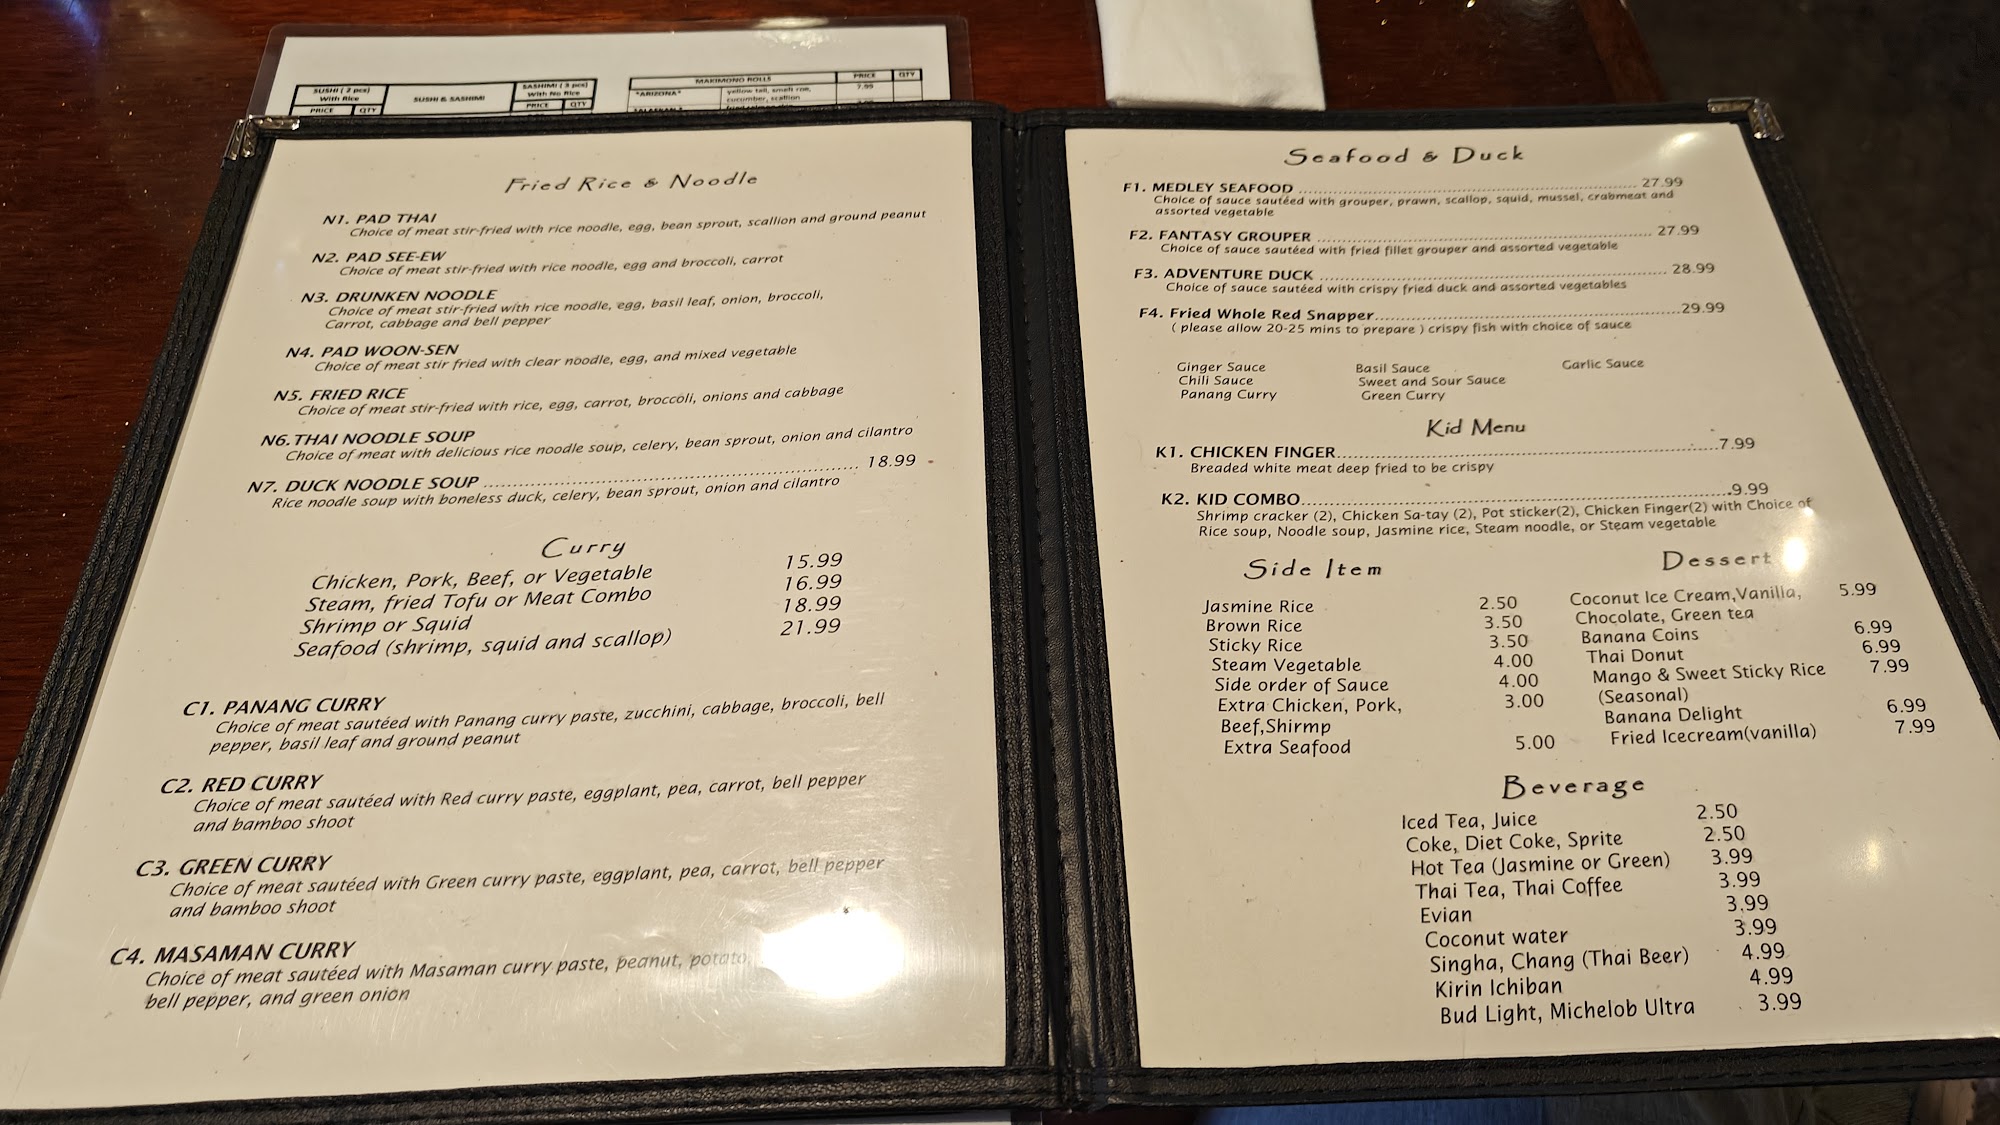 SUSHI ( 2 pcs)
With Rice
PRICE QTY
SUSHI & SASHIMI
SASHIMI ( 3 pcs)
With No Rice
PRICE QTY
MAKIMONO ROLLS PRICE QTY
"ARIZONA" yellow tail, smelt roe, 7.99
cucumber, scallion
Fried Rice & Noodle
N1. PAD THAI
Choice of meat stir-fried with rice noodle, egg, bean sprout, scallion and ground peanut
N2. PAD SEE-EW
Choice of meat stir-fried with rice noodle, egg and broccoli, carrot
N3. DRUNKEN NOODLE
Choice of meat stir-fried with rice noodle, egg, basil leaf, onion, broccoli,
Carrot, cabbage and bell pepper
N4. PAD WOON-SEN
Choice of meat stir fried with clear noodle, egg, and mixed vegetable
N5. FRIED RICE
Choice of meat stir-fried with rice, egg, carrot, broccoli, onions and cabbage
N6. THAI NOODLE SOUP
Choice of meat with delicious rice noodle soup, celery, bean sprout, onion and cilantro
N7. DUCK NOODLE SOUP ........................ 18.99
Rice noodle soup with boneless duck, celery, bean sprout, onion and cilantro
Curry
Chicken, Pork, Beef, or Vegetable 15.99
Steam, fried Tofu or Meat Combo 16.99
Shrimp or Squid 18.99
Seafood (shrimp, squid and scallop) 21.99
C1. PANANG CURRY
Choice of meat sautéed with Panang curry paste, zucchini, cabbage, broccoli, bell
pepper, basil leaf and ground peanut
C2. RED CURRY
Choice of meat sautéed with Red curry paste, eggplant, pea, carrot, bell pepper
and bamboo shoot
C3. GREEN CURRY
Choice of meat sautéed with Green curry paste, eggplant, pea, carrot, bell pepper
and bamboo shoot
C4. MASAMAN CURRY
Choice of meat sautéed with Masaman curry paste, peanut, potato
bell pepper, and green onion
Seafood & Duck
F1. MEDLEY SEAFOOD ........................ 27.99
Choice of sauce sautéed with grouper, prawn, scallop, squid, mussel, crabmeat and
assorted vegetable
F2. FANTASY GROUPER ........................ 27.99
Choice of sauce sautéed with fried fillet grouper and assorted vegetable
F3. ADVENTURE DUCK ........................ 28.99
Choice of sauce sautéed with crispy fried duck and assorted vegetables
F4. Fried Whole Red Snapper........................29.99
( please allow 20-25 mins to prepare ) crispy fish with choice of sauce
Ginger Sauce Basil Sauce Garlic Sauce
Chili Sauce Sweet and Sour Sauce
Panang Curry Green Curry
Kid Menu
K1. CHICKEN FINGER........................7.99
Breaded white meat deep fried to be crispy
K2. KID COMBO........................9.99
Shrimp cracker (2), Chicken Sa-tay (2), Pot sticker(2), Chicken Finger(2) with Choice of
Rice soup, Noodle soup, Jasmine rice, Steam noodle, or Steam vegetable
Side Item
Jasmine Rice 2.50
Brown Rice 3.50
Sticky Rice 3.50
Steam Vegetable 4.00
Side order of Sauce 4.00
Extra Chicken, Pork, 3.00
Beef,Shirmp
Extra Seafood 5.00
Dessert
Coconut Ice Cream,Vanilla, 5.99
Chocolate, Green tea
Banana Coins 6.99
Thai Donut 6.99
Mango & Sweet Sticky Rice 7.99
(Seasonal)
Banana Delight 6.99
Fried Icecream(vanilla) 7.99
Beverage
Iced Tea, Juice 2.50
Coke, Diet Coke, Sprite 2.50
Hot Tea (Jasmine or Green) 3.99
Thai Tea, Thai Coffee 3.99
Evian 3.99
Coconut water 3.99
Singha, Chang (Thai Beer) 4.99
Kirin Ichiban 4.99
Bud Light, Michelob Ultra 3.99